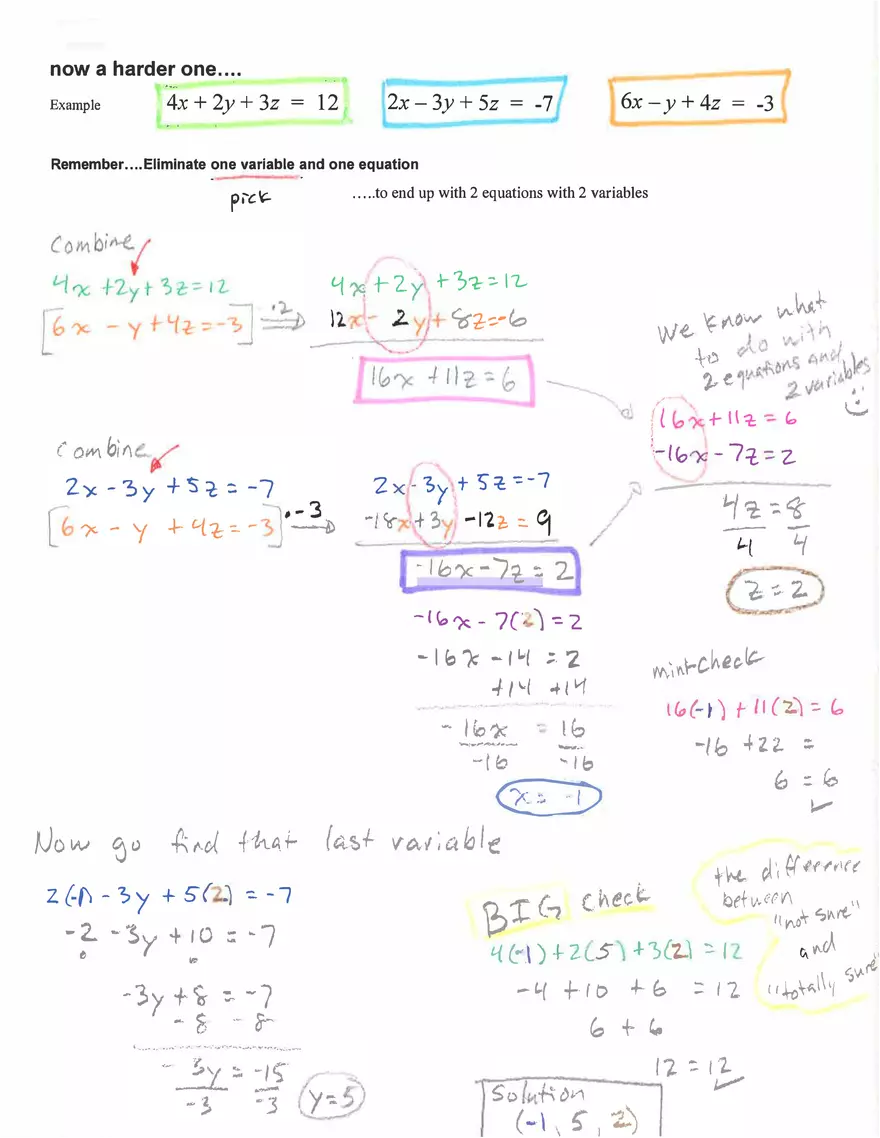 now a harder one....
Example 4x + 2y + 3z = 12 2x – 3y + 5z = -7 6x – y + 4z = -3
Remember....Eliminate one variable and one equation
pick .....to end up with 2 equations with 2 variables
Combine
4x + 2y + 3z = 12
[6x - y + 4z = -3] ·2
4x + 2y + 3z = 12
12x - 2y + 8z = -6
16x + 11z = 6
We know what
to do with
2 equations and
2 variables
16x + 11z = 6
-16x - 7z = 2
4z = 8
4 4
z = 2
Combine
2x - 3y + 5z = -7
[6x - y + 4z = -3] · -3
2x - 3y + 5z = -7
-18x + 3y - 12z = 9
-16x - 7z = 2
-16x - 7(2) = 2
-16x - 14 = 2
+14 +14
-16x = 16
-16 -16
x = -1
mint-check
16(-1) + 11(2) = 6
-16 + 22 =
6 = 6
Now go find that last variable
2(-1) - 3y + 5(2) = -7
-2 - 3y + 10 = -7
-3y + 8 = -7
- 8 - 8
-3y = -15
-3 -3
y = 5
BIG check
4(-1) + 2(5) + 3(2) = 12
-4 + 10 + 6 = 12
6 + 6
12 = 12
the difference
between
"not sure"
and
"totally sure"
Solution
(-1, 5, 2)